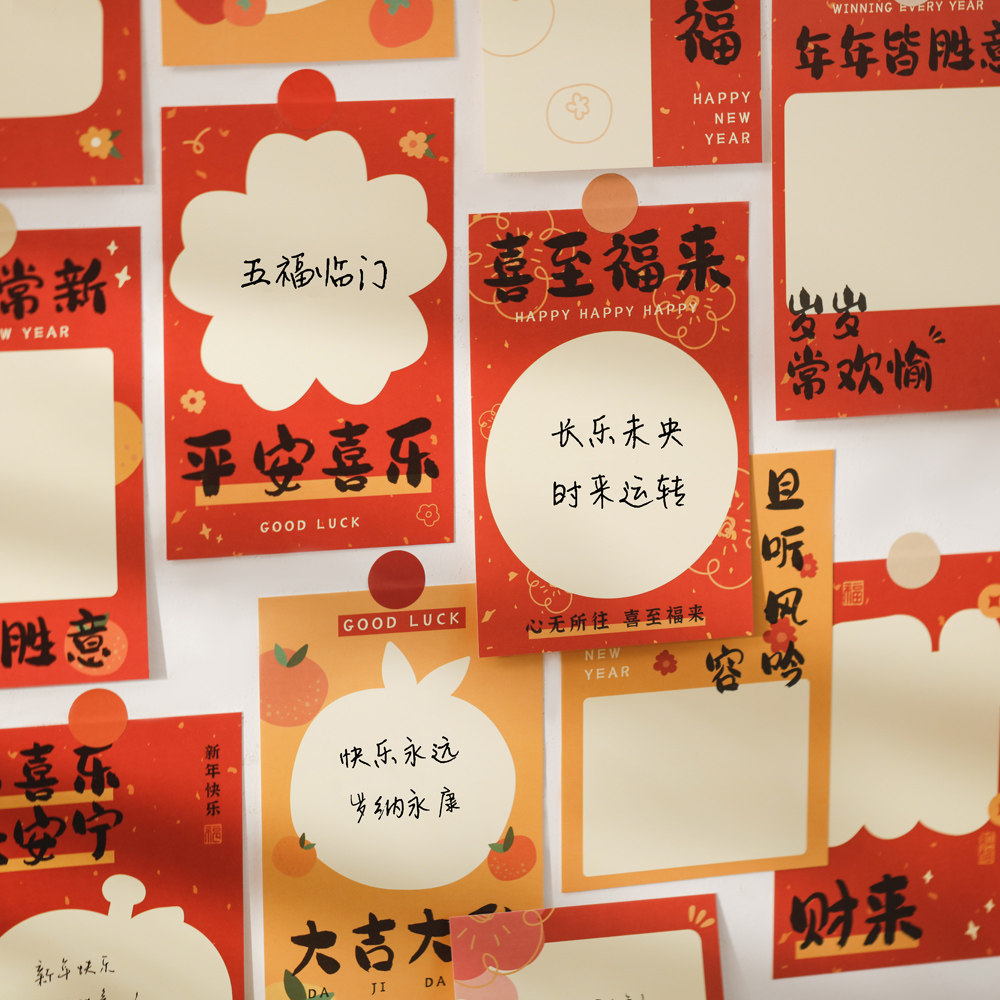 福
HAPPY
NEW
YEAR
WINNING EVERY YEAR
年年皆胜意
岁岁
常欢愉
常新
YEAR
胜意
五福临门
平安喜乐
GOOD LUCK
喜至福来
HAPPY HAPPY HAPPY
长乐未央
时来运转
心无所往 喜至福来
且听风吟
容
NEW
YEAR
福
财来
GOOD LUCK
快乐永远
岁纳永康
大吉大
DA JI DA
喜乐
安宁
新年快乐
福
新年快乐